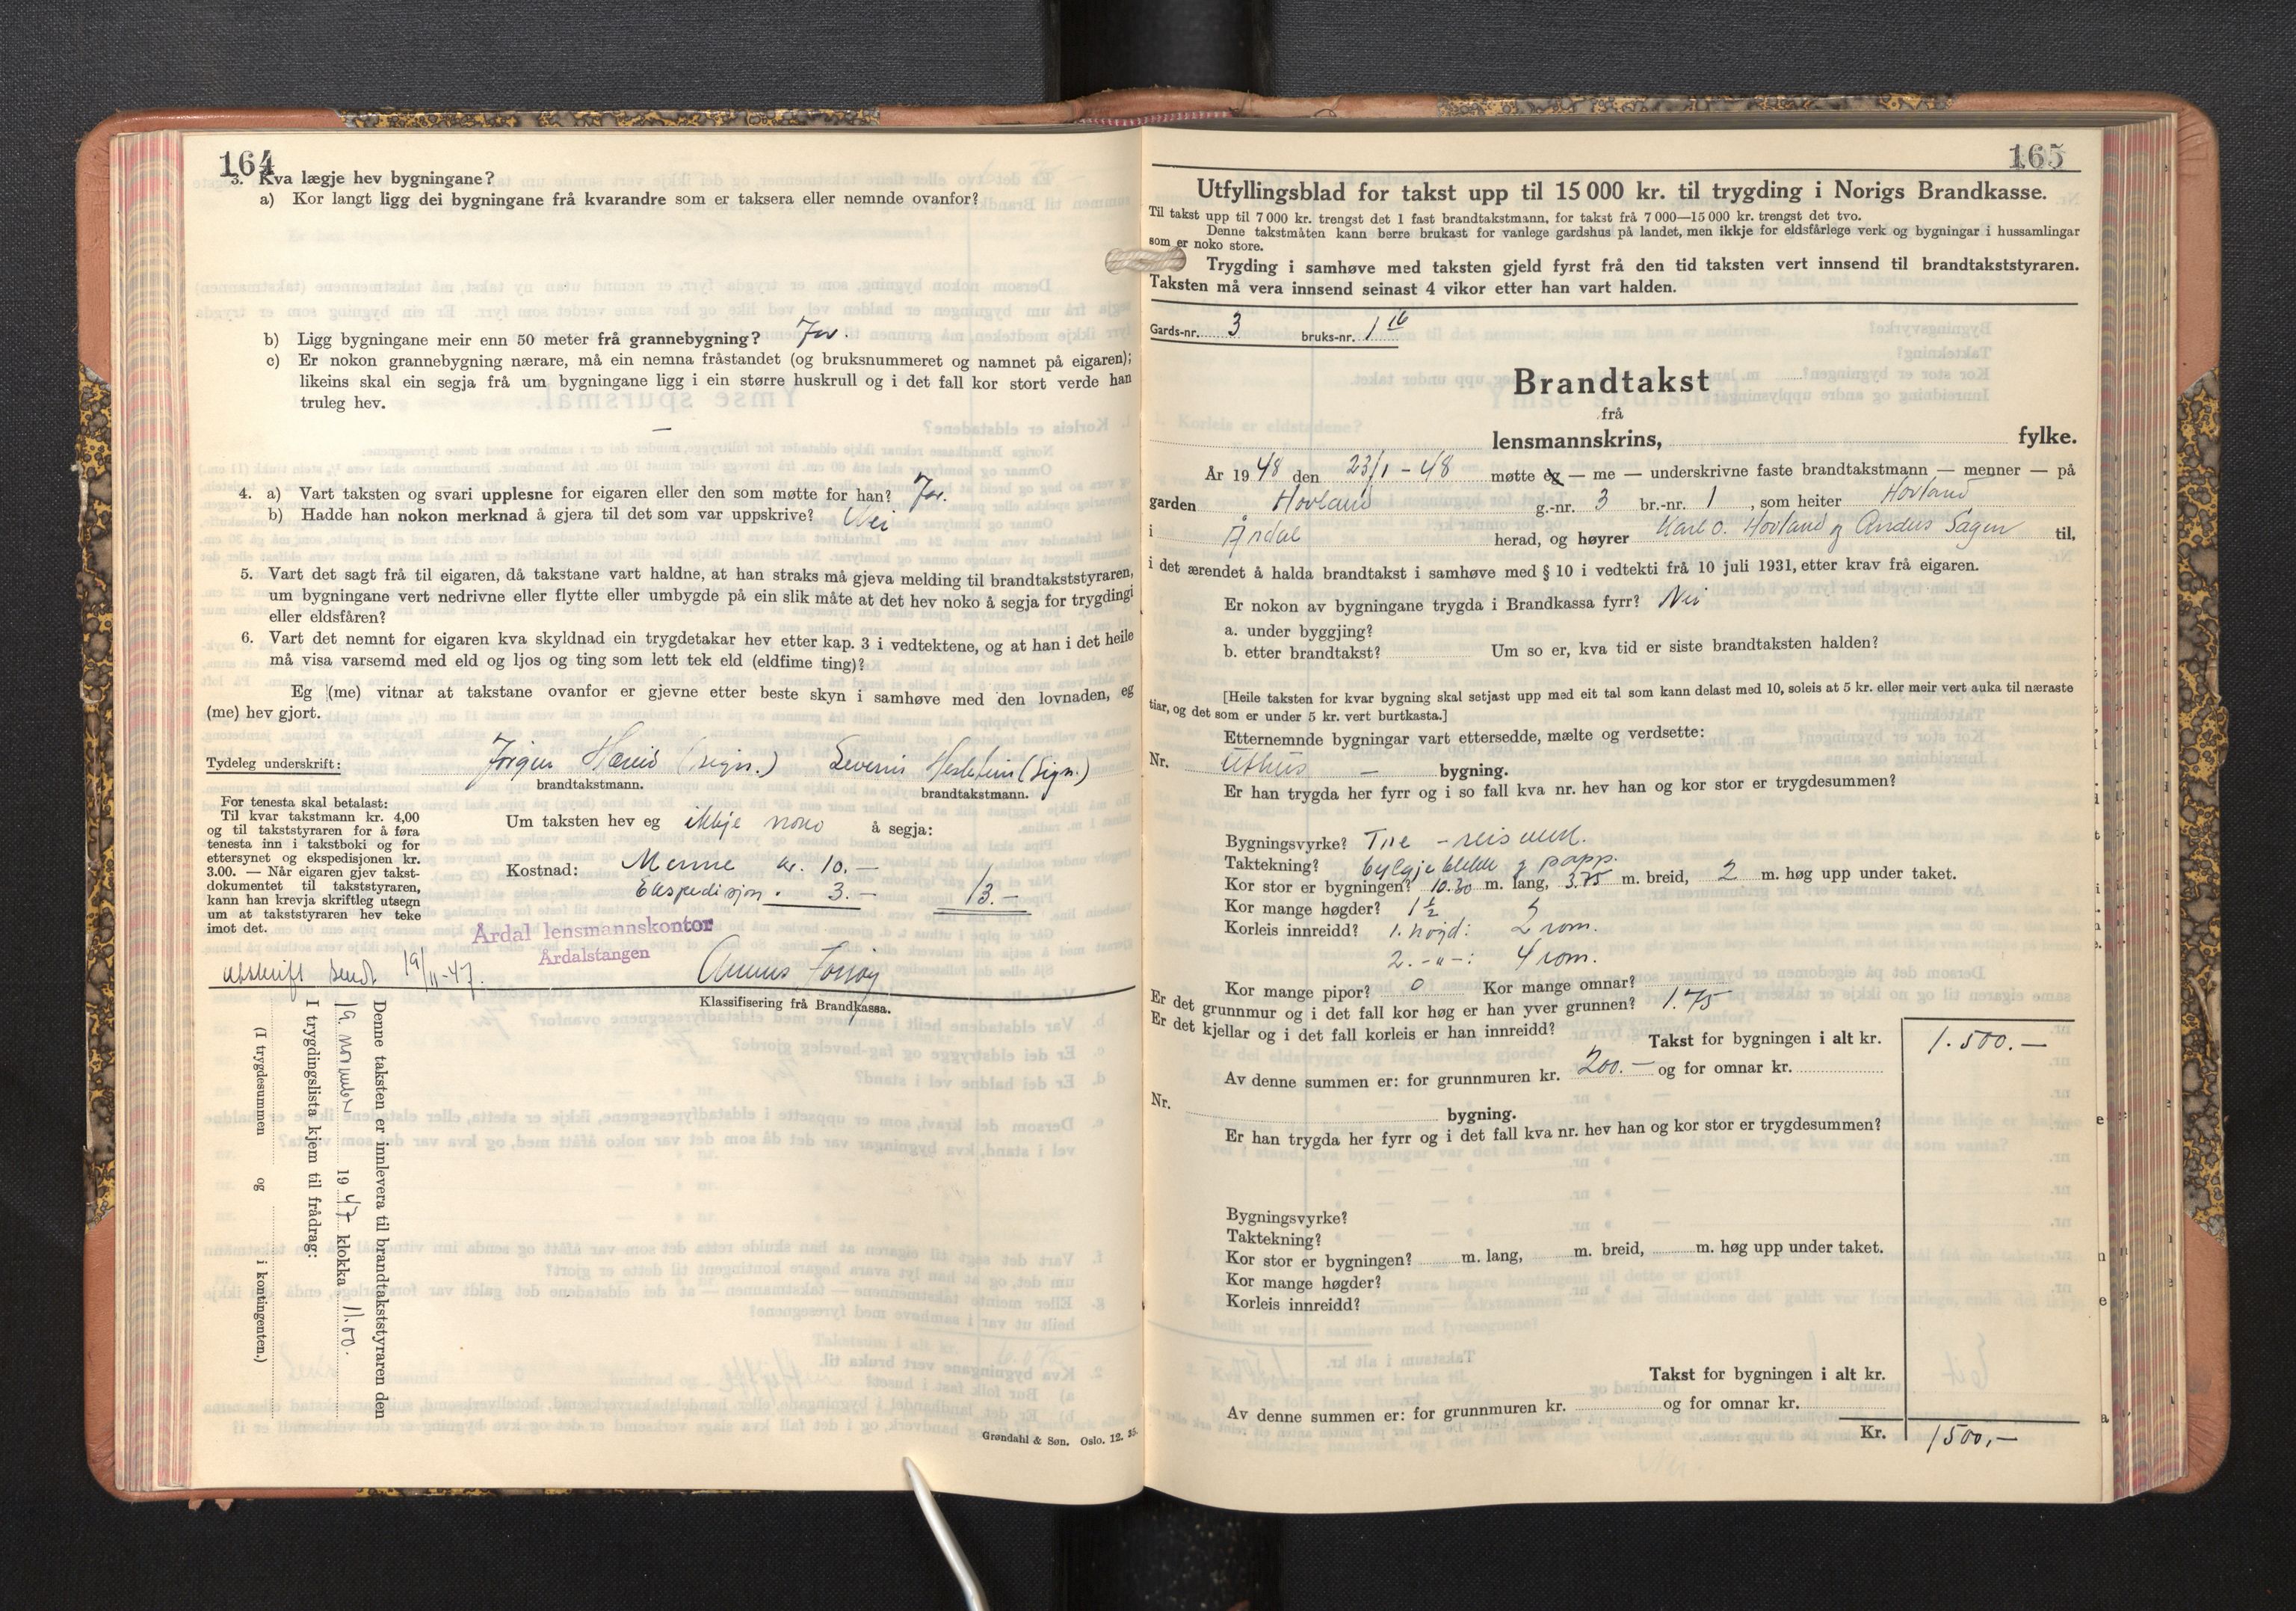 164
3. Kva lægje hev bygningane?
a) Kor langt ligg dei bygningane frå kvarandre som er taksera eller nemnde ovanfor?
b) Ligg bygningane meir enn 50 meter frå grannebygning? Ja.
c) Er nokon grannebygning nærare, må ein nemna fråstandet (og bruksnummeret og namnet på eigaren);
likeins skal ein segja frå um bygningane ligg i ein større huskrull og i det fall kor stort verde han
truleg hev.
—
4. a) Vart taksten og svari upplesne for eigaren eller den som møtte for han? Ja.
b) Hadde han nokon merknad å gjera til det som var uppskrive? Nei
5. Vart det sagt frå til eigaren, då takstane vart haldne, at han straks må gjeva melding til brandtakststyraren,
um bygningane vert nedrivne eller flytte eller umbygde på ein slik måte at det hev noko å segja for trygdingi
eller eldsfåren?
6. Vart det nemnt for eigaren kva skyldnad ein trygdetakar hev etter kap. 3 i vedtektene, og at han i det heile
må visa varsemd med eld og ljos og ting som lett tek eld (eldfime ting)?
Eg (me) vitnar at takstane ovanfor er gjevne etter beste skyn i samhøve med den lovnaden, eg
(me) hev gjort.
Tydeleg underskrift: (sign.) (Sign.)
brandtakstmann. brandtakstmann.
For tenesta skal betalast:
Til kvar takstmann kr. 4,00
og til takststyraren for å føra
tenesta inn i takstboki og for
ettersynet og ekspedisjonen kr.
3.00. — Når eigaren gjev takst-
dokumentet til takststyraren,
kann han krevja skriftleg utsegn
um at takststyraren hev teke
imot det.
Um taksten hev eg ikkje noko å segja:
Kostnad: Menne kr. 10.—
Ekspedisjon . 3.— 13.—
Årdal lensmannskontor
Årdalstangen
utskrift sendt 19/11-47.
Klassifisering frå Brandkassa.
Denne taksten er innlevera til brandtakststyraren den
19. november 1947 klokka 11.00.
I trygdingslista kjem til frådrag:
(I trygdesummen og i kontingenten.)
Grøndahl & Søn. Oslo. 12. 35.
165
Utfyllingsblad for takst upp til 15 000 kr. til trygding i Norigs Brandkasse.
Til takst upp til 7 000 kr. trengst det 1 fast brandtakstmann, for takst frå 7 000—15 000 kr. trengst det tvo.
Denne takstmåten kann berre brukast for vanlege gardshus på landet, men ikkje for eldsfårlege verk og bygningar i hussamlingar
som er noko store.
Trygding i samhøve med taksten gjeld fyrst frå den tid taksten vert innsend til brandtakststyraren.
Taksten må vera innsend seinast 4 vikor etter han vart halden.
Gards-nr. 3 bruks-nr. 1 16
Brandtakst
frå
lensmannskrins, fylke.
År 1948 den 23/1 - 48 møtte eg — me — underskrivne faste brandtakstmann — menner — på
garden Hovland g.-nr. 3 br.-nr. 1 , som heiter Hovland
i Årdal herad, og høyrer Karl O. Hovland og Anders Sagen til,
i det ærendet å halda brandtakst i samhøve med § 10 i vedtekti frå 10 juli 1931, etter krav frå eigaren.
Er nokon av bygningane trygda i Brandkassa fyrr? Nei
a. under byggjing?
b. etter brandtakst? Um so er, kva tid er siste brandtaksten halden?
[Heile taksten for kvar bygning skal setjast upp med eit tal som kann delast med 10, soleis at 5 kr. eller meir vert auka til næraste
tiar, og det som er under 5 kr. vert burtkasta.]
Etternemnde bygningar vart ettersedde, mælte og verdsette:
Nr. Uthus — bygning.
Er han trygda her fyrr og i so fall kva nr. hev han og kor stor er trygdesummen?
Bygningsvyrke? Tre - reisverk.
Taktekning? bylgjeblekk og papp.
Kor stor er bygningen? 10.30 m. lang, 3.75 m. breid, 2 m. høg upp under taket.
Kor mange høgder? 1 1/2
Korleis innreidd? 1. høgd: 2 rom.
2. -"-: 4 rom.
Kor mange pipor? 0 Kor mange omnar?
Er det grunnmur og i det fall kor høg er han yver grunnen? 1.75
Er det kjellar og i det fall korleis er han innreidd?
Takst for bygningen i alt kr. 1.500.—
Av denne summen er: for grunnmuren kr. 200.— og for omnar kr.
Nr. bygning.
Er han trygda her fyrr og i det fall kva nr. hev han og kor stor er trygdesummen?
Bygningsvyrke?
Taktekning?
Kor stor er bygningen? m. lang, m. breid, m. høg upp under taket.
Kor mange høgder?
Korleis innreidd?
Takst for bygningen i alt kr.
Av denne summen er: for grunnmuren kr. og for omnar kr.
Kr. 1500,—